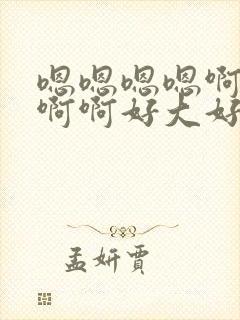 嗯嗯嗯嗯啊
啊啊好大好
孟妍贾